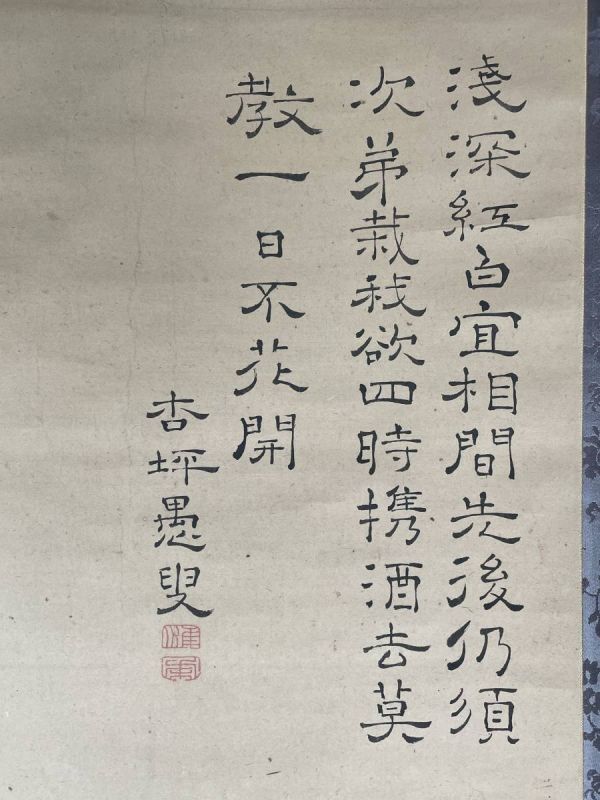 淺深紅白宜相間先後仍須
次第栽我欲四時携酒去莫
教一日不花開
杏坪愚叟